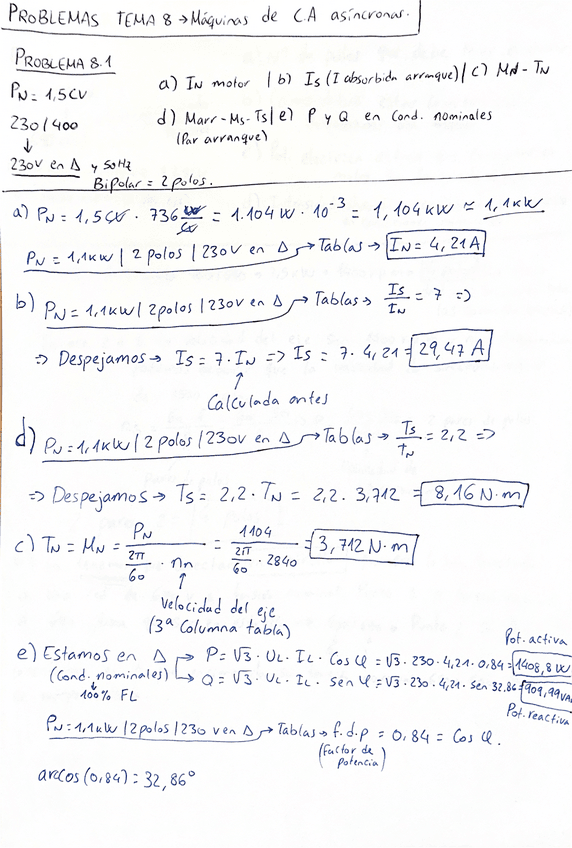 PROBLEMAS TEMA 8 → Máquinas de C.A asíncronas.
PROBLEMA 8.1
PN = 1,5CV
230/400
↓
230V en Δ y 50Hz
Bipolar = 2 polos.
a) IN motor | b) Is (I absorbida arranque) | c) MN - TN
d) Marr - Ms - Ts | e) P y Q en Cond. nominales
(Par arranque)
a) PN = 1,5 CV · 736 W/CV = 1.104 W · 10⁻³ = 1,104 kW ≈ 1,1 kW
PN = 1,1kW | 2 polos | 230V en Δ → Tablas → IN = 4,21A
b) PN = 1,1kW | 2 polos | 230V en Δ → Tablas → Is/IN = 7 =>
=> Despejamos → Is = 7 · IN => Is = 7 · 4,21 = 29,47 A
↑
Calculada antes
d) PN = 1,1kW | 2 polos | 230V en Δ → Tablas → Ts/tN = 2,2 =>
=> Despejamos → Ts = 2,2 · TN = 2,2 · 3,712 = 8,16 N·m
c) TN = MN = PN / (2π/60 · nn) = 1104 / (2π/60 · 2840) = 3,712 N·m
↑
Velocidad del eje
(3ª Columna tabla)
Pot. activa
e) Estamos en Δ → P = √3 · UL · IL · Cos φ = √3 · 230 · 4,21 · 0,84 = 1408,8 W
(Cond. nominales) → Q = √3 · UL · IL · sen φ = √3 · 230 · 4,21 · sen 32.86 = 909,99 VAr
↓
100% FL
Pot. reactiva
PN = 1,1kW | 2 polos | 230 V en Δ → Tablas → f.d.p = 0,84 = Cos φ.
(Factor de potencia)
arcos (0,84) = 32,86°